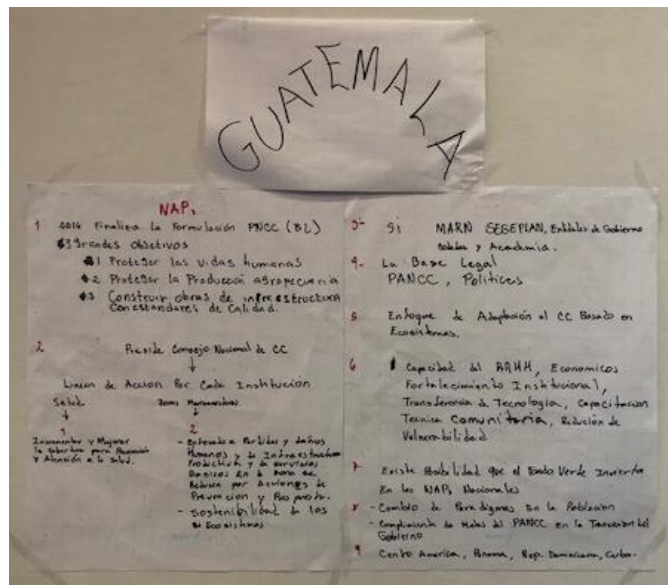 GUATEMALA
NAPs
1 2016 Finaliza La Formulación PNCC (BL)
3 Grandes Objetivos
#1 Proteger las vidas humanas
#2 Proteger la Producción agropecuaria
#3 Construir obras de infraestructura
Con estandares de Calidad.
2 Preside Consejo Nacional de CC
Lineas de Acción Por Cada Institución
Salud Zonas
1 2
Incrementar y Mejorar
la cobertura para
y Atención a la Salud.
Perdidas y daños
Humanos y la Infraestructura
Productiva y de servicios
Basicos En la zona se
Reducen por Acciones de
Prevención y
- Sostenibilidad de los
Ecosistemas
3- Si MARN SEGEPLAN, Entidades de Gobierno
y Academia.
4- La Base Legal
PANCC, Politicas
5 Enfoque de Adaptación al CC Basado en
Ecosistemas.
6 Capacidad del RRHH, Economicos
Fortalecimiento Institucional,
Transferencia de Tecnología, Capacitacion
Tecnica Comunitaria, Reducion de
Vulnerabilidad
7 Existe Posibilidad que el Fondo Verde Invierta
En los NAPs Nacionales
8 - Cambio de Paradigmas En la Poblacion
- Cumplimiento de Metas del PANCC en la del
Gobierno
9 Centro America, Panama, Rep. Dominicana, Cuba.